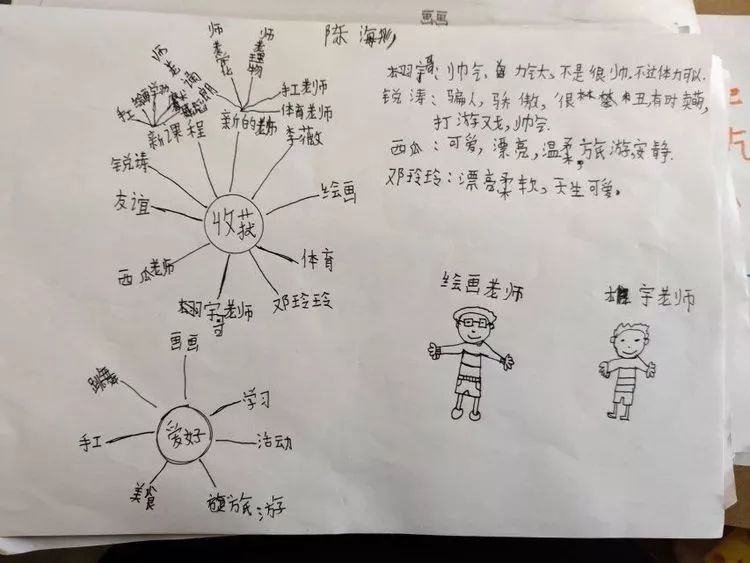 画画
陈海彤
翊宇：帅气，自力气大，不是很帅，不过体力可以.
锐涛：骗人，骄傲，很丑，有时卖萌，
打游戏，帅气.
西瓜：可爱，漂亮，温柔，旅游，安静.
邓玲玲：漂亮柔软，天生可爱。
手工
新课程
手工老师
体育老师
新的老师
李薇
锐涛
友谊
西瓜老师
翊宇老师
邓玲玲
体育
绘画
收获
绘画老师
宇老师
画画
跳舞
手工
美食
旅游
活动
学习
爱好